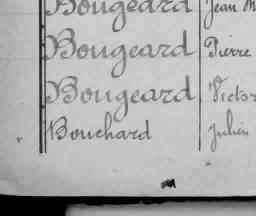 Bougeard Jean M
Bougeard Pierre
Bougeard Victor
Bouchard Julien